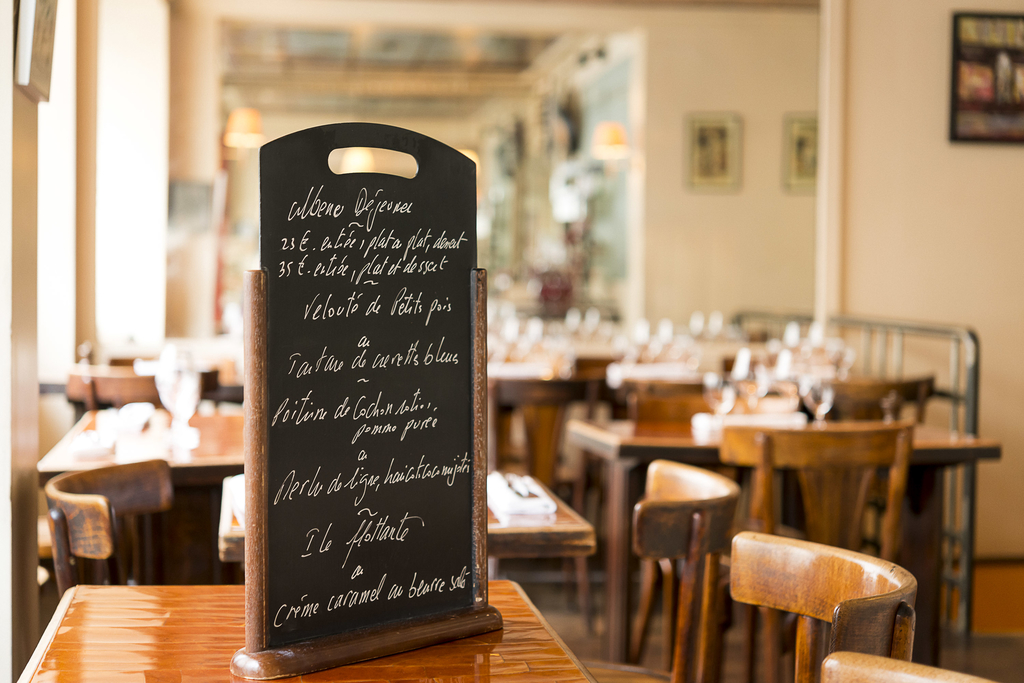 Déjeuner
23 € . entrée, plat ou plat, dessert
35 € . entrée, plat et dessert
Velouté de Petits pois
ou
Tartare de crevettes bleues
~
Poitrine de Cochon
pomme purée
ou
Merlu de ligne, haricots coco
Ile flottante
ou
Crème caramel au beurre salé